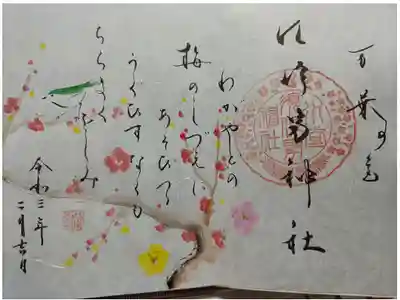 万葉の
神社
わがやどの
梅のしづえに
あそびつつ
うぐひすなくも
ちらまく
をしみ
令和三年
二月吉日